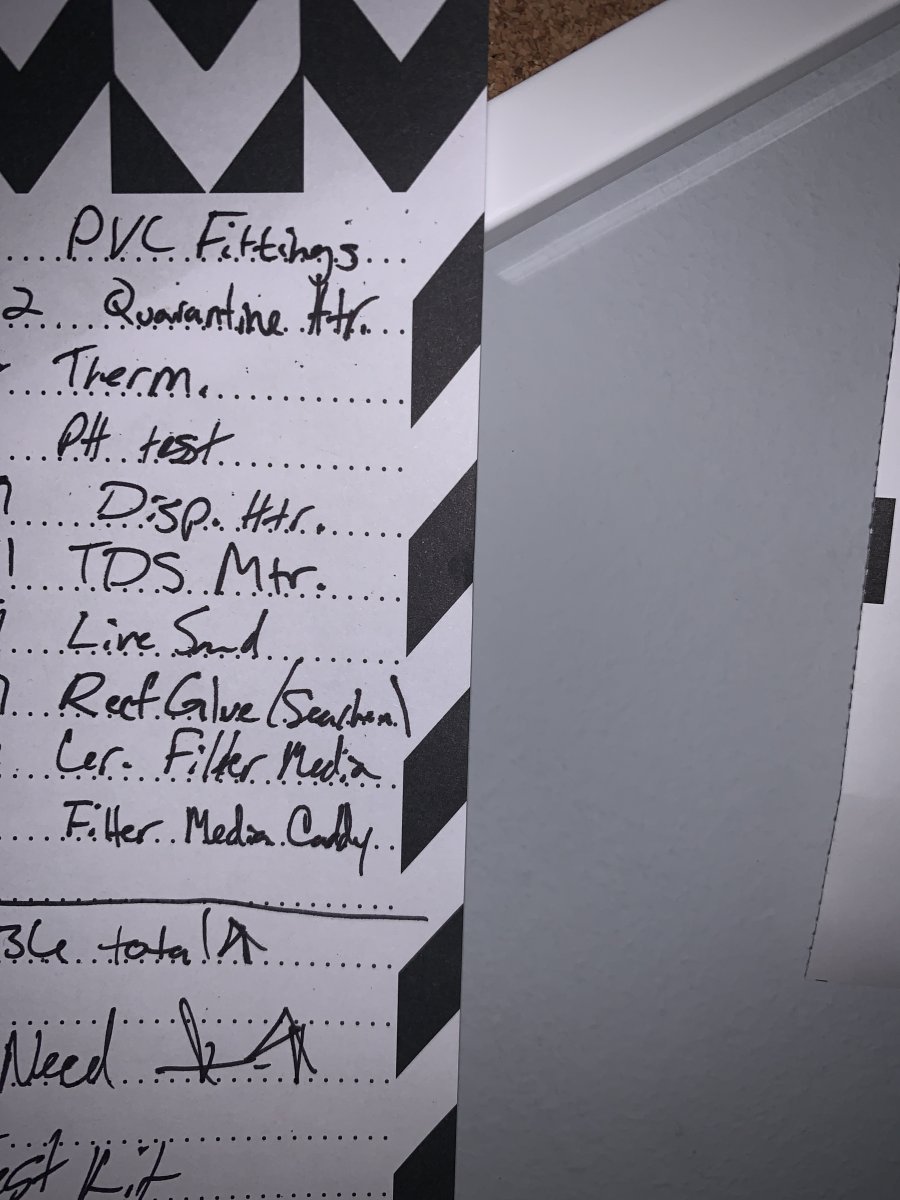 PVC Fittings
2 Quarantine Htr.
Therm.
PH test
Disp. Htr.
1 TDS Mtr.
Live Sand
Reef Glue (Seachem)
Cer. Filter Media
Filter Media Caddy
36 total
Need
est Kit